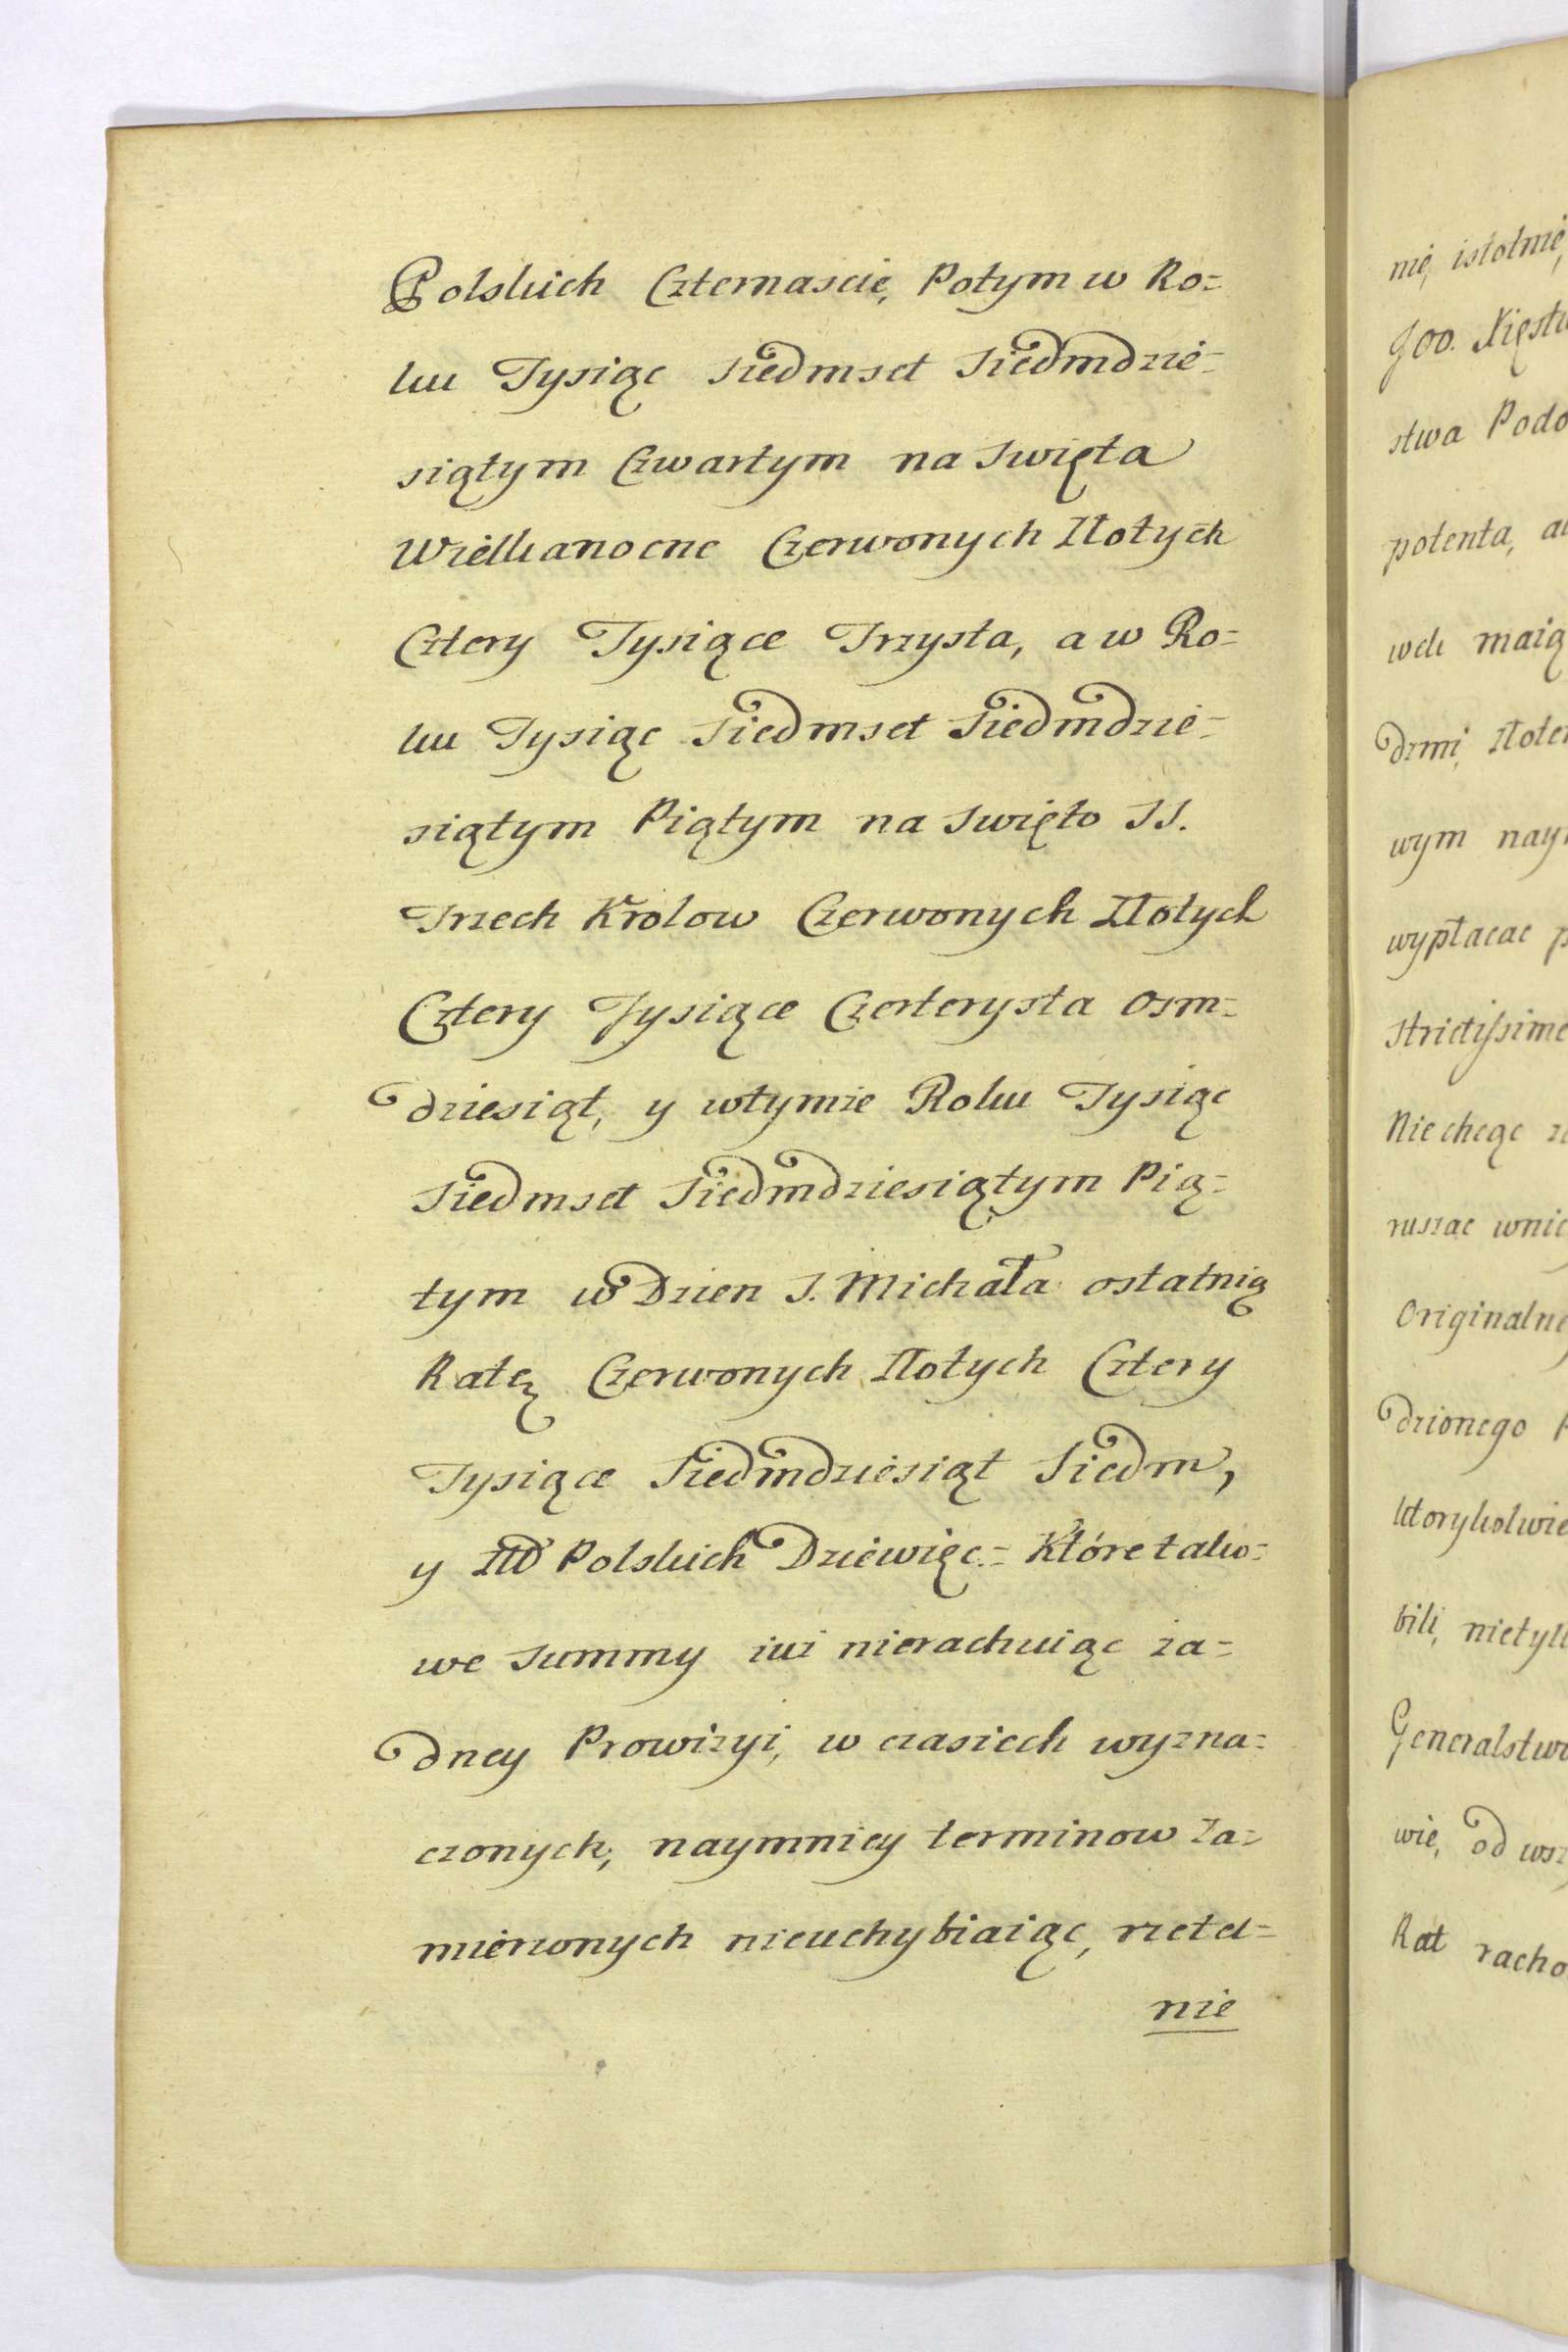 Polskich Czternascie, Potym w Ro=
ku Tysiąc Siedmset Siedmdzie=
siątym Czwartym na Swięta
Wielkanocne Czerwonych Złotych
Cztery Tysiące Trzysta, a w Ro=
ku Tysiąc Siedmset Siedmdzie=
siątym Piątym na Swięto SS.
Trzech Krolow Czerwonych Złotych
Cztery Tysiące Czterysta Osm=
dziesiąt, y wtymże Roku Tysiąc
Siedmset Siedmdziesiątym Pią=
tym w Dzien S. Michała ostatnią
Ratę Czerwonych Złotych Cztery
Tysiące Siedmdziesiąt Siedm,
y Złł Polskich Dziewięc.= Które tako=
we Summy iuż nierachuiąc ża=
dney Prowizyi, w czasiech wyzna=
czonych, naymniey terminow Za=
mierzonych nieuchybiaiąc, rzetel=
nie
nie, istotnie,
stwa Podo
potenta,
wek maią
dzmi,
wym nay
wypłacac
strictissime
Nie chcąc
ruszac
Originalne
dzionego
ktorykolwie
bili, nietylk
Generalstwo
wie, od wsz
Rat racho